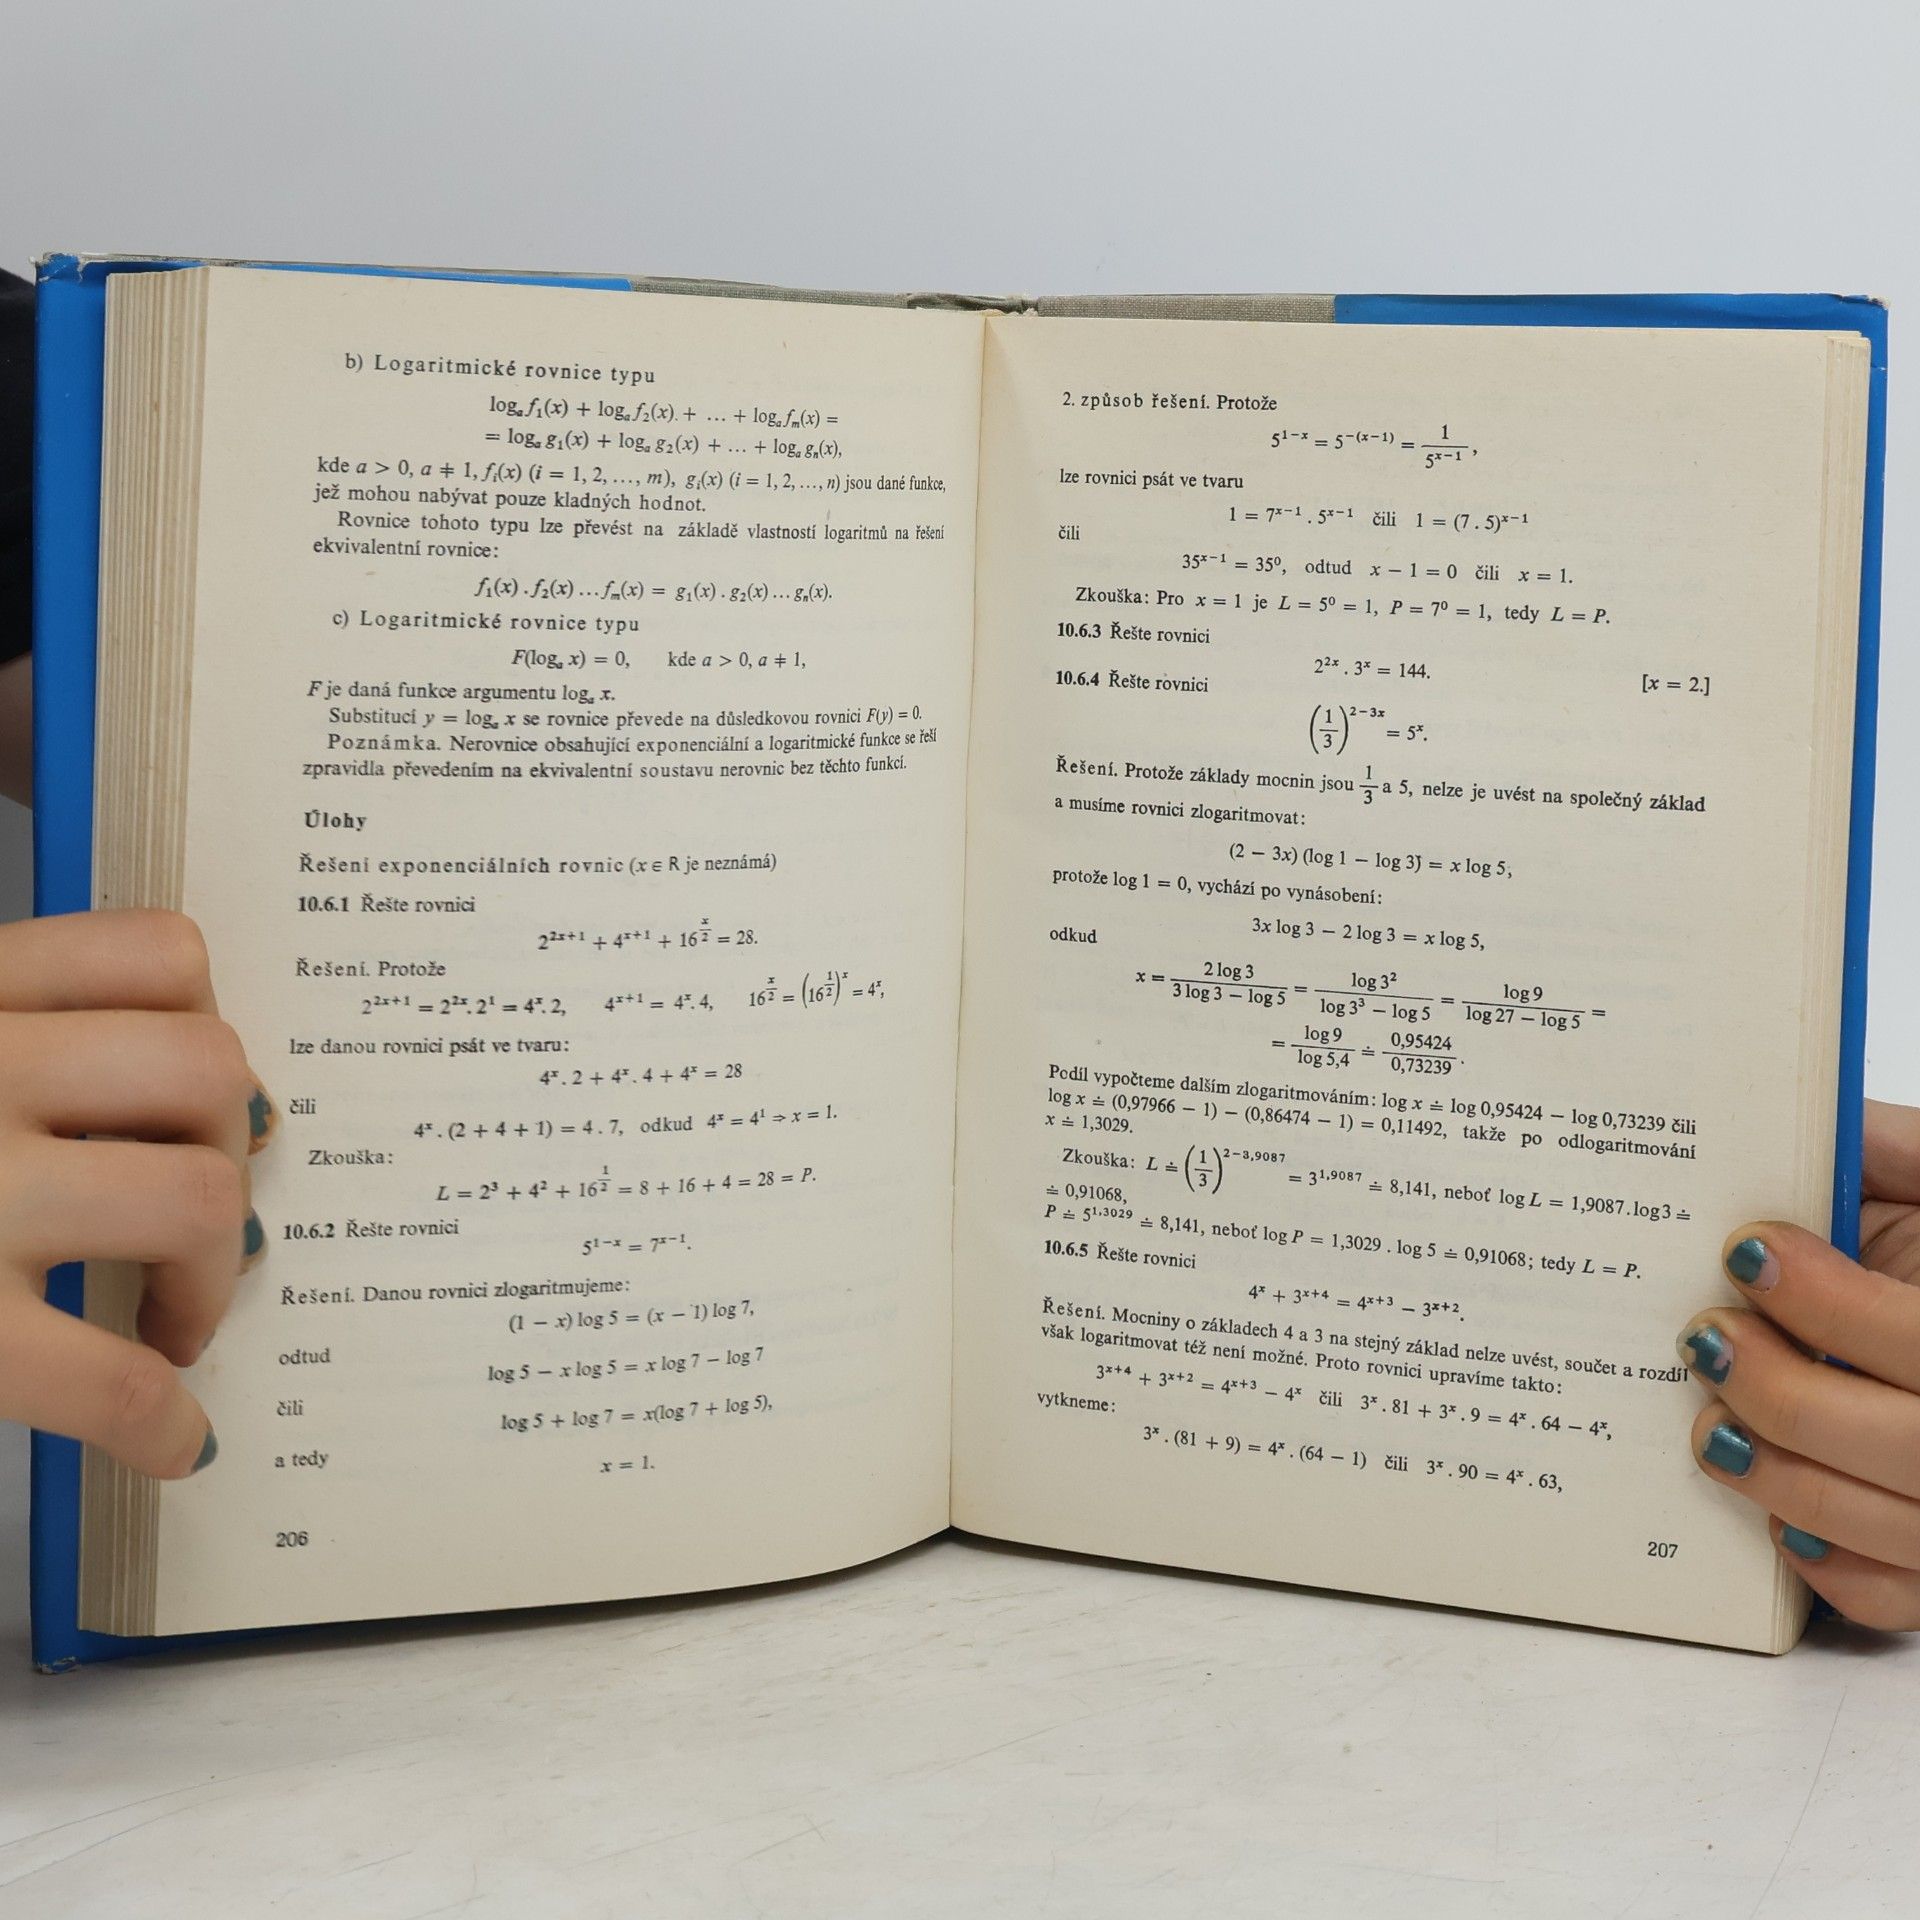 b) Logaritmické rovnice typu
logₐ f₁(x) + logₐ f₂(x) + ... + logₐ fₘ(x) =
= logₐ g₁(x) + logₐ g₂(x) + ... + logₐ gₙ(x),
kde a > 0, a ≠ 1, fᵢ(x) (i = 1, 2, ..., m), gᵢ(x) (i = 1, 2, ..., n) jsou dané funkce,
jež mohou nabývat pouze kladných hodnot.
Rovnice tohoto typu lze převést na základě vlastností logaritmů na řešení
ekvivalentní rovnice:
f₁(x) . f₂(x) ... fₘ(x) = g₁(x) . g₂(x) ... gₙ(x).
c) Logaritmické rovnice typu
F(logₐ x) = 0, kde a > 0, a ≠ 1,
F je daná funkce argumentu logₐ x.
Substitucí y = logₐ x se rovnice převede na důsledkovou rovnici F(y) = 0.
Poznámka. Nerovnice obsahující exponenciální a logaritmické funkce se řeší
zpravidla převedením na ekvivalentní soustavu nerovnic bez těchto funkcí.
Úlohy
Řešení exponenciálních rovnic (x ∈ R je neznámá)
10.6.1 Řešte rovnici
2^(2x+1) + 4^(x+1) + 16^(x/2) = 28.
Řešení. Protože
2^(2x+1) = 2^(2x) . 2^1 = 4^x . 2, 4^(x+1) = 4^x . 4, 16^(x/2) = (16^(1/2))^x = 4^x,
lze danou rovnici psát ve tvaru:
4^x . 2 + 4^x . 4 + 4^x = 28
čili
4^x . (2 + 4 + 1) = 4 . 7, odkud 4^x = 4^1 ⇒ x = 1.
Zkouška:
L = 2^3 + 4^2 + 16^(1/2) = 8 + 16 + 4 = 28 = P.
10.6.2 Řešte rovnici
5^(1−x) = 7^(x−1).
Řešení. Danou rovnici zlogaritmujeme:
(1 − x) log 5 = (x − 1) log 7,
odtud
log 5 − x log 5 = x log 7 − log 7
čili
log 5 + log 7 = x(log 7 + log 5),
a tedy
x = 1.
206
2. způsob řešení. Protože
5^(1−x) = 5^(−(x−1)) = 1/5^(x−1),
lze rovnici psát ve tvaru
1 = 7^(x−1) . 5^(x−1) čili 1 = (7 . 5)^(x−1)
čili
35^(x−1) = 35^0, odtud x − 1 = 0 čili x = 1.
Zkouška: Pro x = 1 je L = 5^0 = 1, P = 7^0 = 1, tedy L = P.
10.6.3 Řešte rovnici
2^(2x) . 3^x = 144.
[x = 2.]
10.6.4 Řešte rovnici
(1/3)^(2−3x) = 5^x.
Řešení. Protože základy mocnin jsou 1/3 a 5, nelze je uvést na společný základ
a musíme rovnici zlogaritmovat:
(2 − 3x) (log 1 − log 3) = x log 5;
protože log 1 = 0, vychází po vynásobení:
3x log 3 − 2 log 3 = x log 5,
odkud
x = 2 log 3/(3 log 3 − log 5) = log 3^2/(log 3^3 − log 5) = log 9/(log 27 − log 5) =
= log 9/log 5,4 ≐ 0,95424/0,73239 .
Podíl vypočteme dalším zlogaritmováním: log x ≐ log 0,95424 − log 0,73239 čili
log x ≐ (0,97966 − 1) − (0,86474 − 1) = 0,11492, takže po odlogaritmování
x ≐ 1,3029.
Zkouška: L ≐ (1/3)^(2−3,9087) = 3^(1,9087) ≐ 8,141, neboť log L = 1,9087.log 3 ≐
≐ 0,91068,
P ≐ 5^(1,3029) ≐ 8,141, neboť log P = 1,3029 . log 5 ≐ 0,91068; tedy L = P.
10.6.5 Řešte rovnici
4^x + 3^(x+4) = 4^(x+3) − 3^(x+2).
Řešení. Mocniny o základech 4 a 3 na stejný základ nelze uvést, součet a rozdíl
však logaritmovat též není možné. Proto rovnici upravíme takto:
3^(x+4) + 3^(x+2) = 4^(x+3) − 4^x čili 3^x . 81 + 3^x . 9 = 4^x . 64 − 4^x,
vytkneme:
3^x . (81 + 9) = 4^x . (64 − 1) čili 3^x . 90 = 4^x . 63,
207